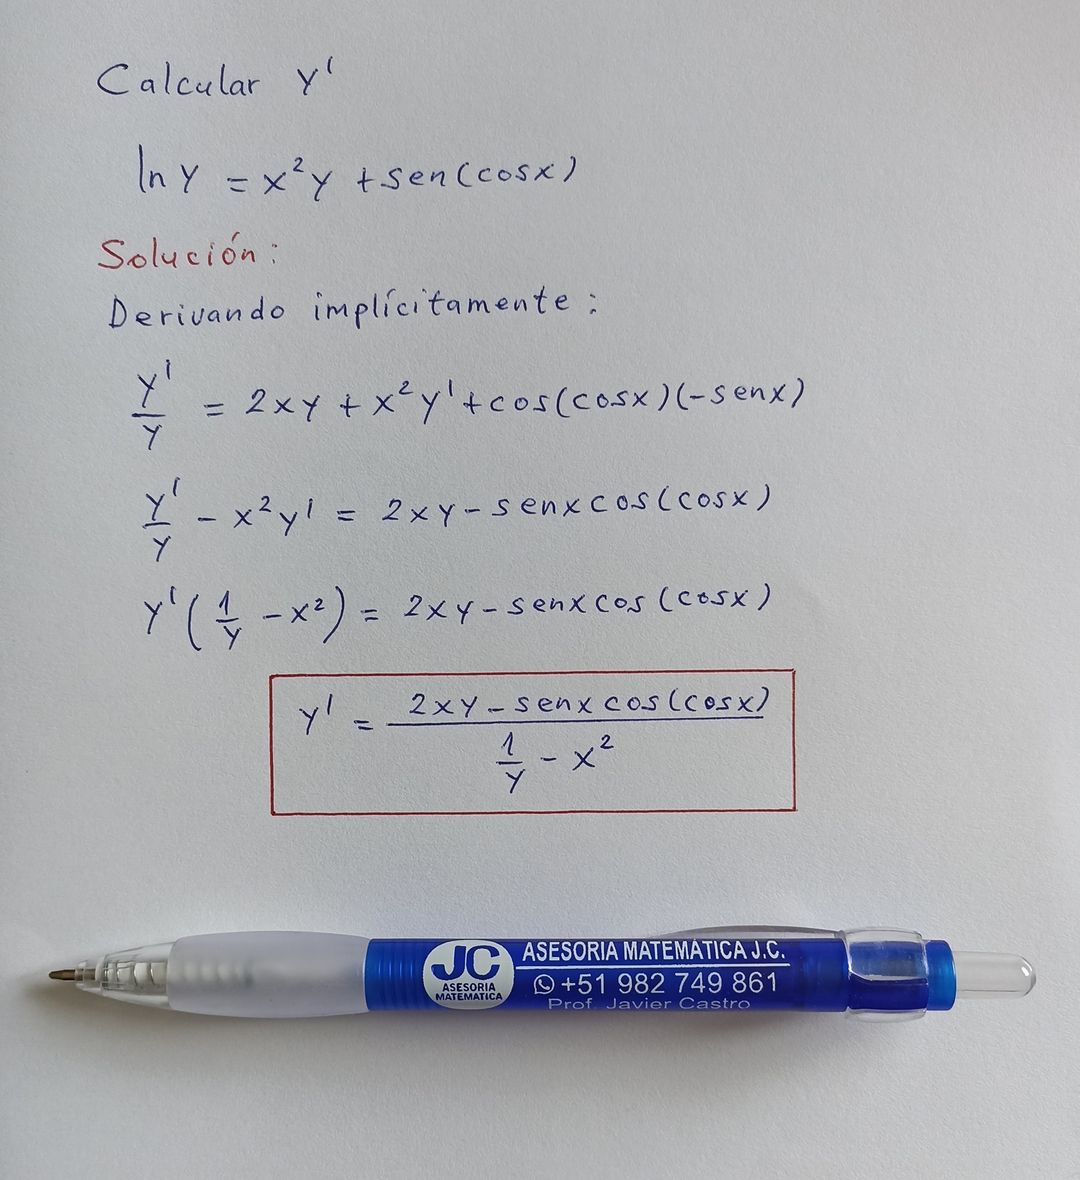 Calcular y'
ln y = x²y + sen(cosx)
Solución:
Derivando implícitamente:
y'/y = 2xy + x²y' + cos(cosx)(-senx)
y'/y - x²y' = 2xy - senxcos(cosx)
y'(1/y - x²) = 2xy - senxcos(cosx)
y' = (2xy - senxcos(cosx))/(1/y - x²)
JC
ASESORIA
MATEMATICA
ASESORIA MATEMÁTICA J.C.
+51 982 749 861
Prof. Javier Castro